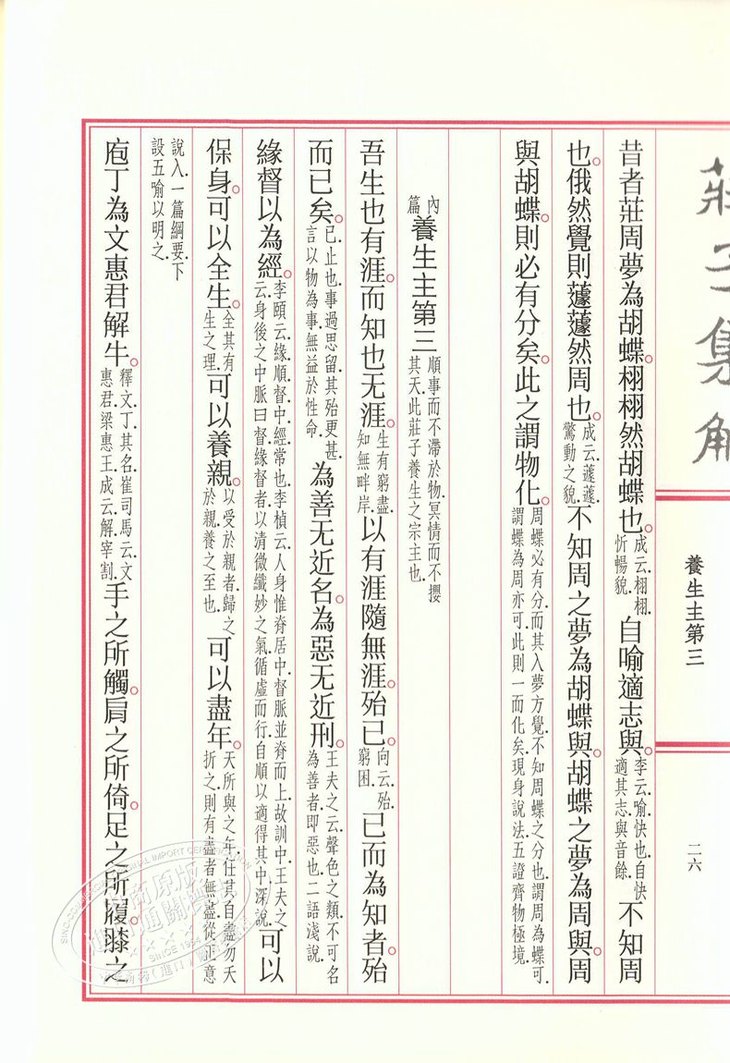 莊子集解
養生主第三
二六
昔者莊周夢為胡蝶。栩栩然胡蝶也。成云.栩栩.忻暢貌.自喻適志與。李云.喻.快也.自快適其志.與音餘.不知周
也。俄然覺則蘧蘧然周也。成云.蘧蘧.驚動之貌.不知周之夢為胡蝶與。胡蝶之夢為周與。周
與胡蝶。則必有分矣。此之謂物化。周蝶必有分.而其入夢方覺.不知周蝶之分也.謂周為蝶可.謂蝶為周亦可.此則一而化矣.現身說法.五證齊物極境.
內篇養生主第三順事而不滯於物.冥情而不攖其天.此莊子養生之宗主也.
吾生也有涯。而知也无涯。生有窮盡.知無畔岸.以有涯隨無涯。殆已。向云.殆.窮困.已而為知者。殆
而已矣。已.止也.事過思留.其殆更甚.言以物為事.無益於性命.為善无近名。為惡无近刑。王夫之云.聲色之類.不可名為善者.即惡也.二語淺說.
緣督以為經。李頤云.緣.順.督.中.經.常也.李楨云.人身惟脊居中.督脈並脊而上.故訓中.王夫之云.身後之中脈曰督.緣督者.以清微纖妙之氣.循虛而行.自順以適得其中.深說.可以
保身。可以全生。全其有生之理.可以養親。以受於親者.歸之於親.養之至也.可以盡年。天所與之年.任其自盡.勿夭折之.則有盡者無盡.從正意
說入.一篇綱要.下設五喻以明之.
庖丁為文惠君解牛。釋文.丁.其名.崔司馬云.文惠君.梁惠王.成云.解.宰割.手之所觸。肩之所倚。足之所履。膝之